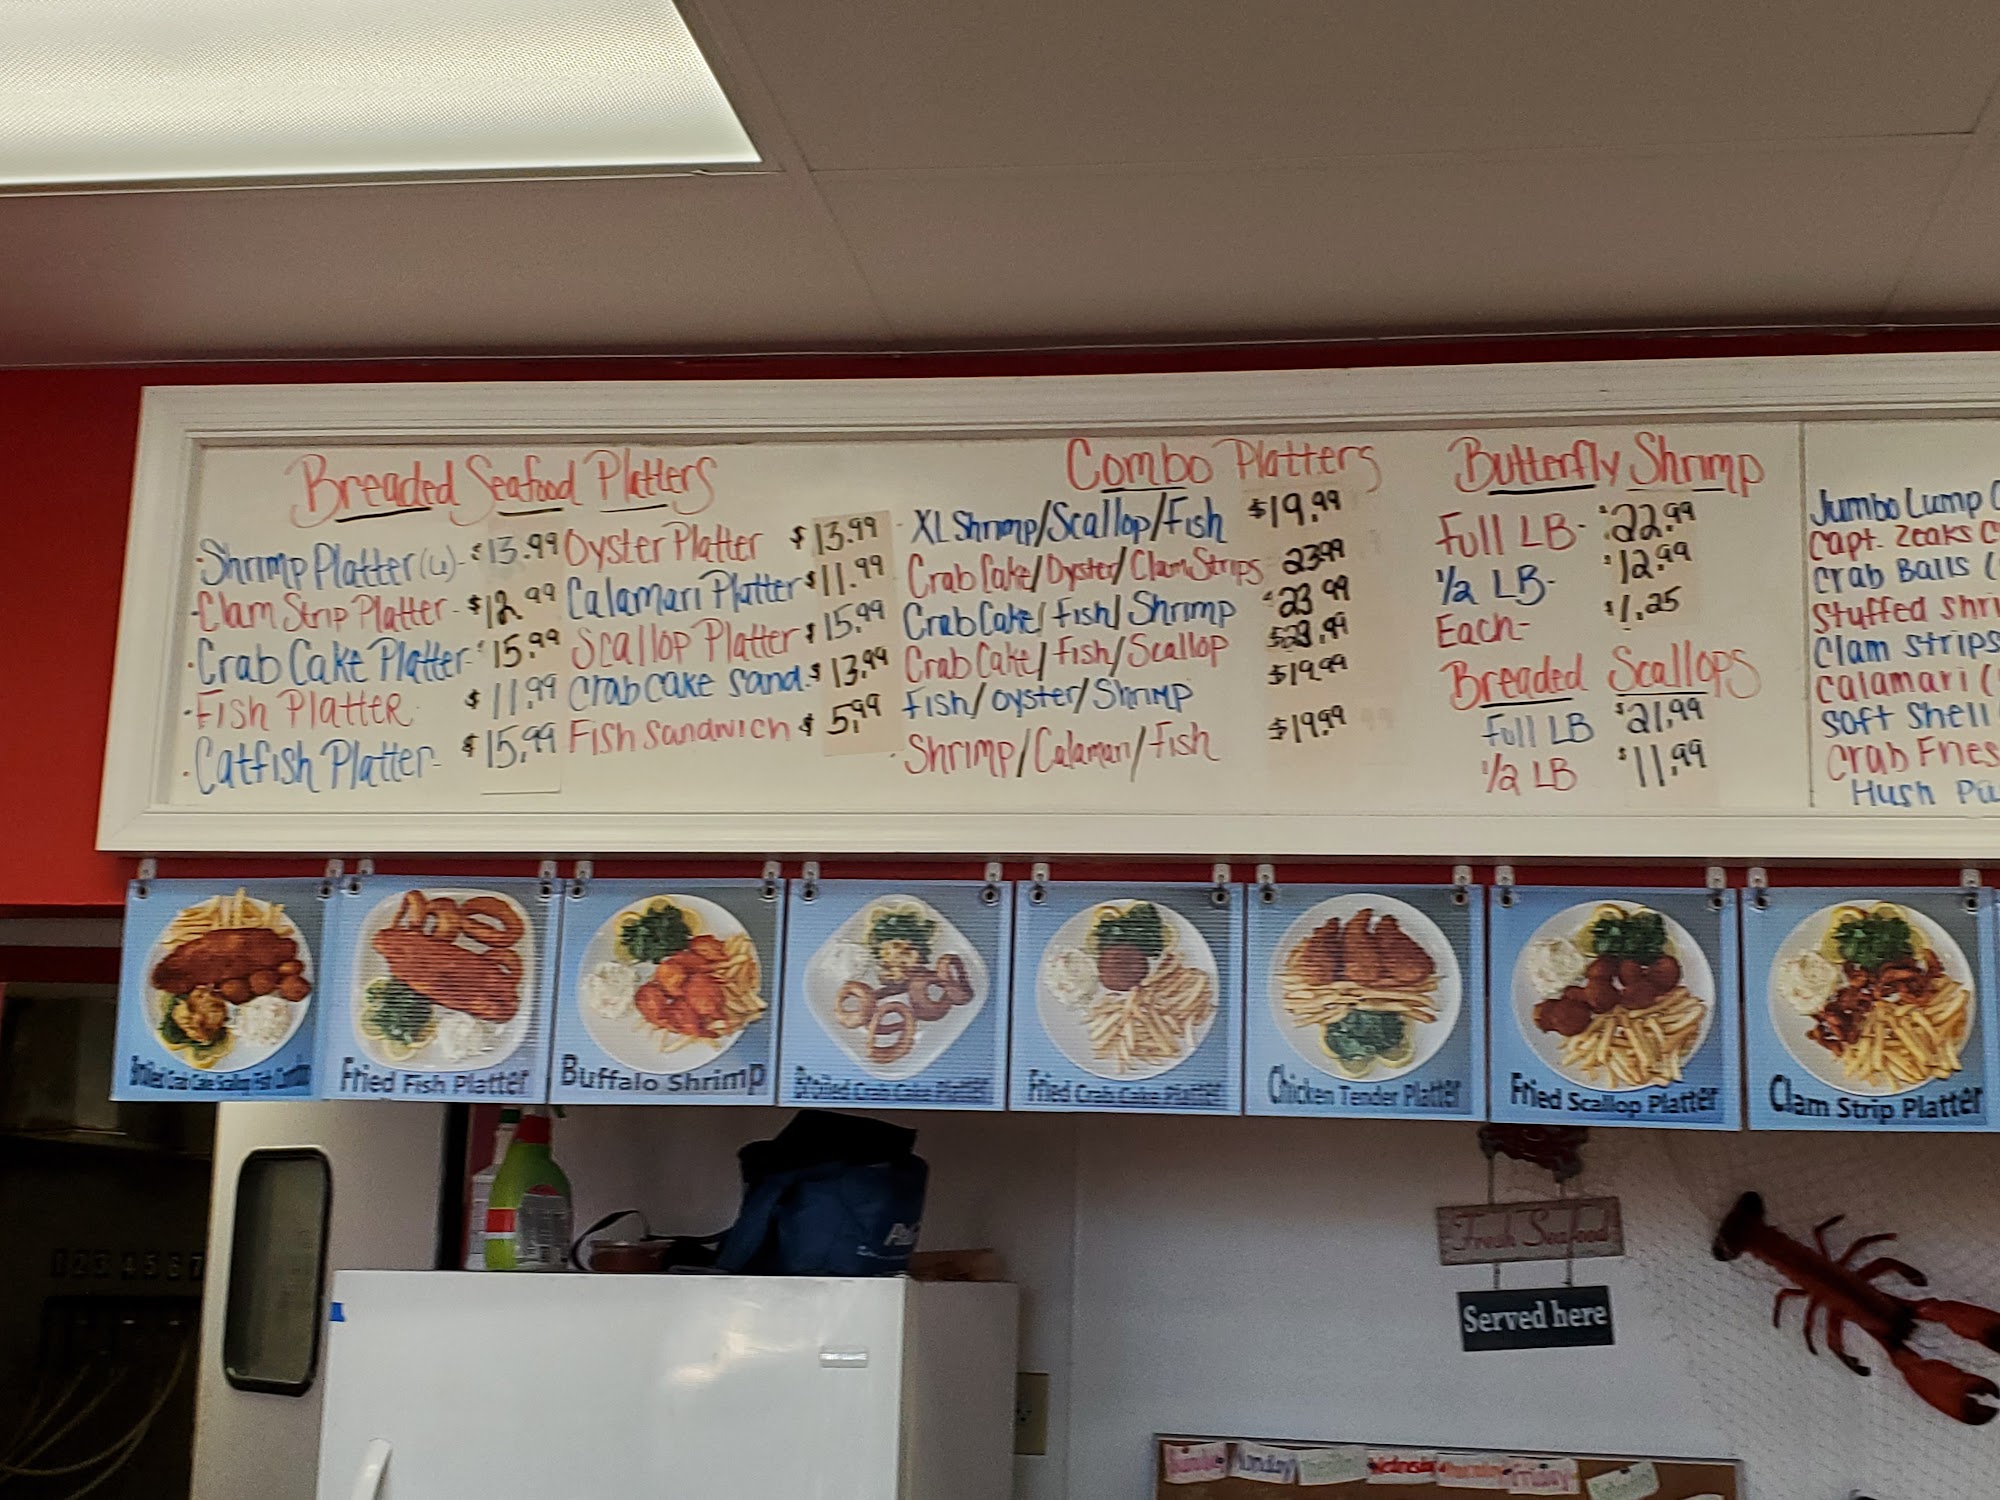 Breaded Seafood Platters
Shrimp Platter - $13.99
Clam Strip Platter - $12.99
Crab Cake Platter - $15.99
Fish Platter $11.99
Catfish Platter - $15.99
Oyster Platter $13.99
Calamari Platter $11.99
Scallop Platter $15.99
Crab cake Sand. $13.99
Fish Sandwich $5.99
Combo Platters
XL Shrimp/Scallop/Fish $19.99
Crab Cake/Oyster/Clam Strips 23.99
Crab Cake/Fish/Shrimp $23.99
Crab Cake/Fish/Scallop $23.99
Fish/Oyster/Shrimp $19.99
Shrimp/Calamari/Fish $19.99
Butterfly Shrimp
Full LB - $22.99
1/2 LB - $12.99
Each - $1.25
Breaded Scallops
Full LB $21.99
1/2 LB $11.99
Jumbo Lump
Capt. Zeaks
Crab Balls
Stuffed
Clam Strips
Calamari
Soft Shell
Crab Fries
Hush
Broiled Crab Cake Scallop Fish Combo
Fried Fish Platter
Buffalo Shrimp
Broiled Crab Cake Platter
Fried Crab Cake Platter
Chicken Tender Platter
Fried Scallop Platter
Clam Strip Platter
Fresh Seafood
Served here
1 2 3 4 5 6 7
Sunday Monday Wednesday Thursday Friday